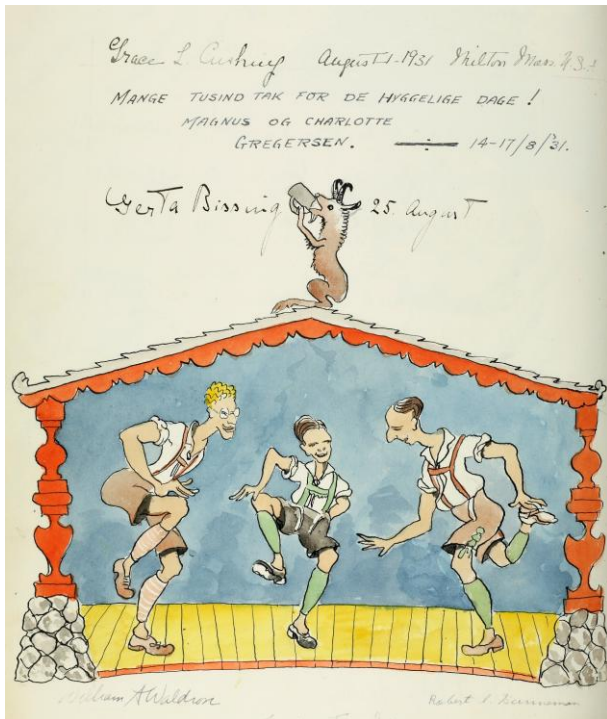 Grace L. Cushing August 1-1931 Milton Mass.
MANGE TUSIND TAK FOR DE HYGGELIGE DAGE!
MAGNUS OG CHARLOTTE
GREGERSEN. 14-17/8/31.
Gerta Bissing 25. August
William A Waldron
Robert